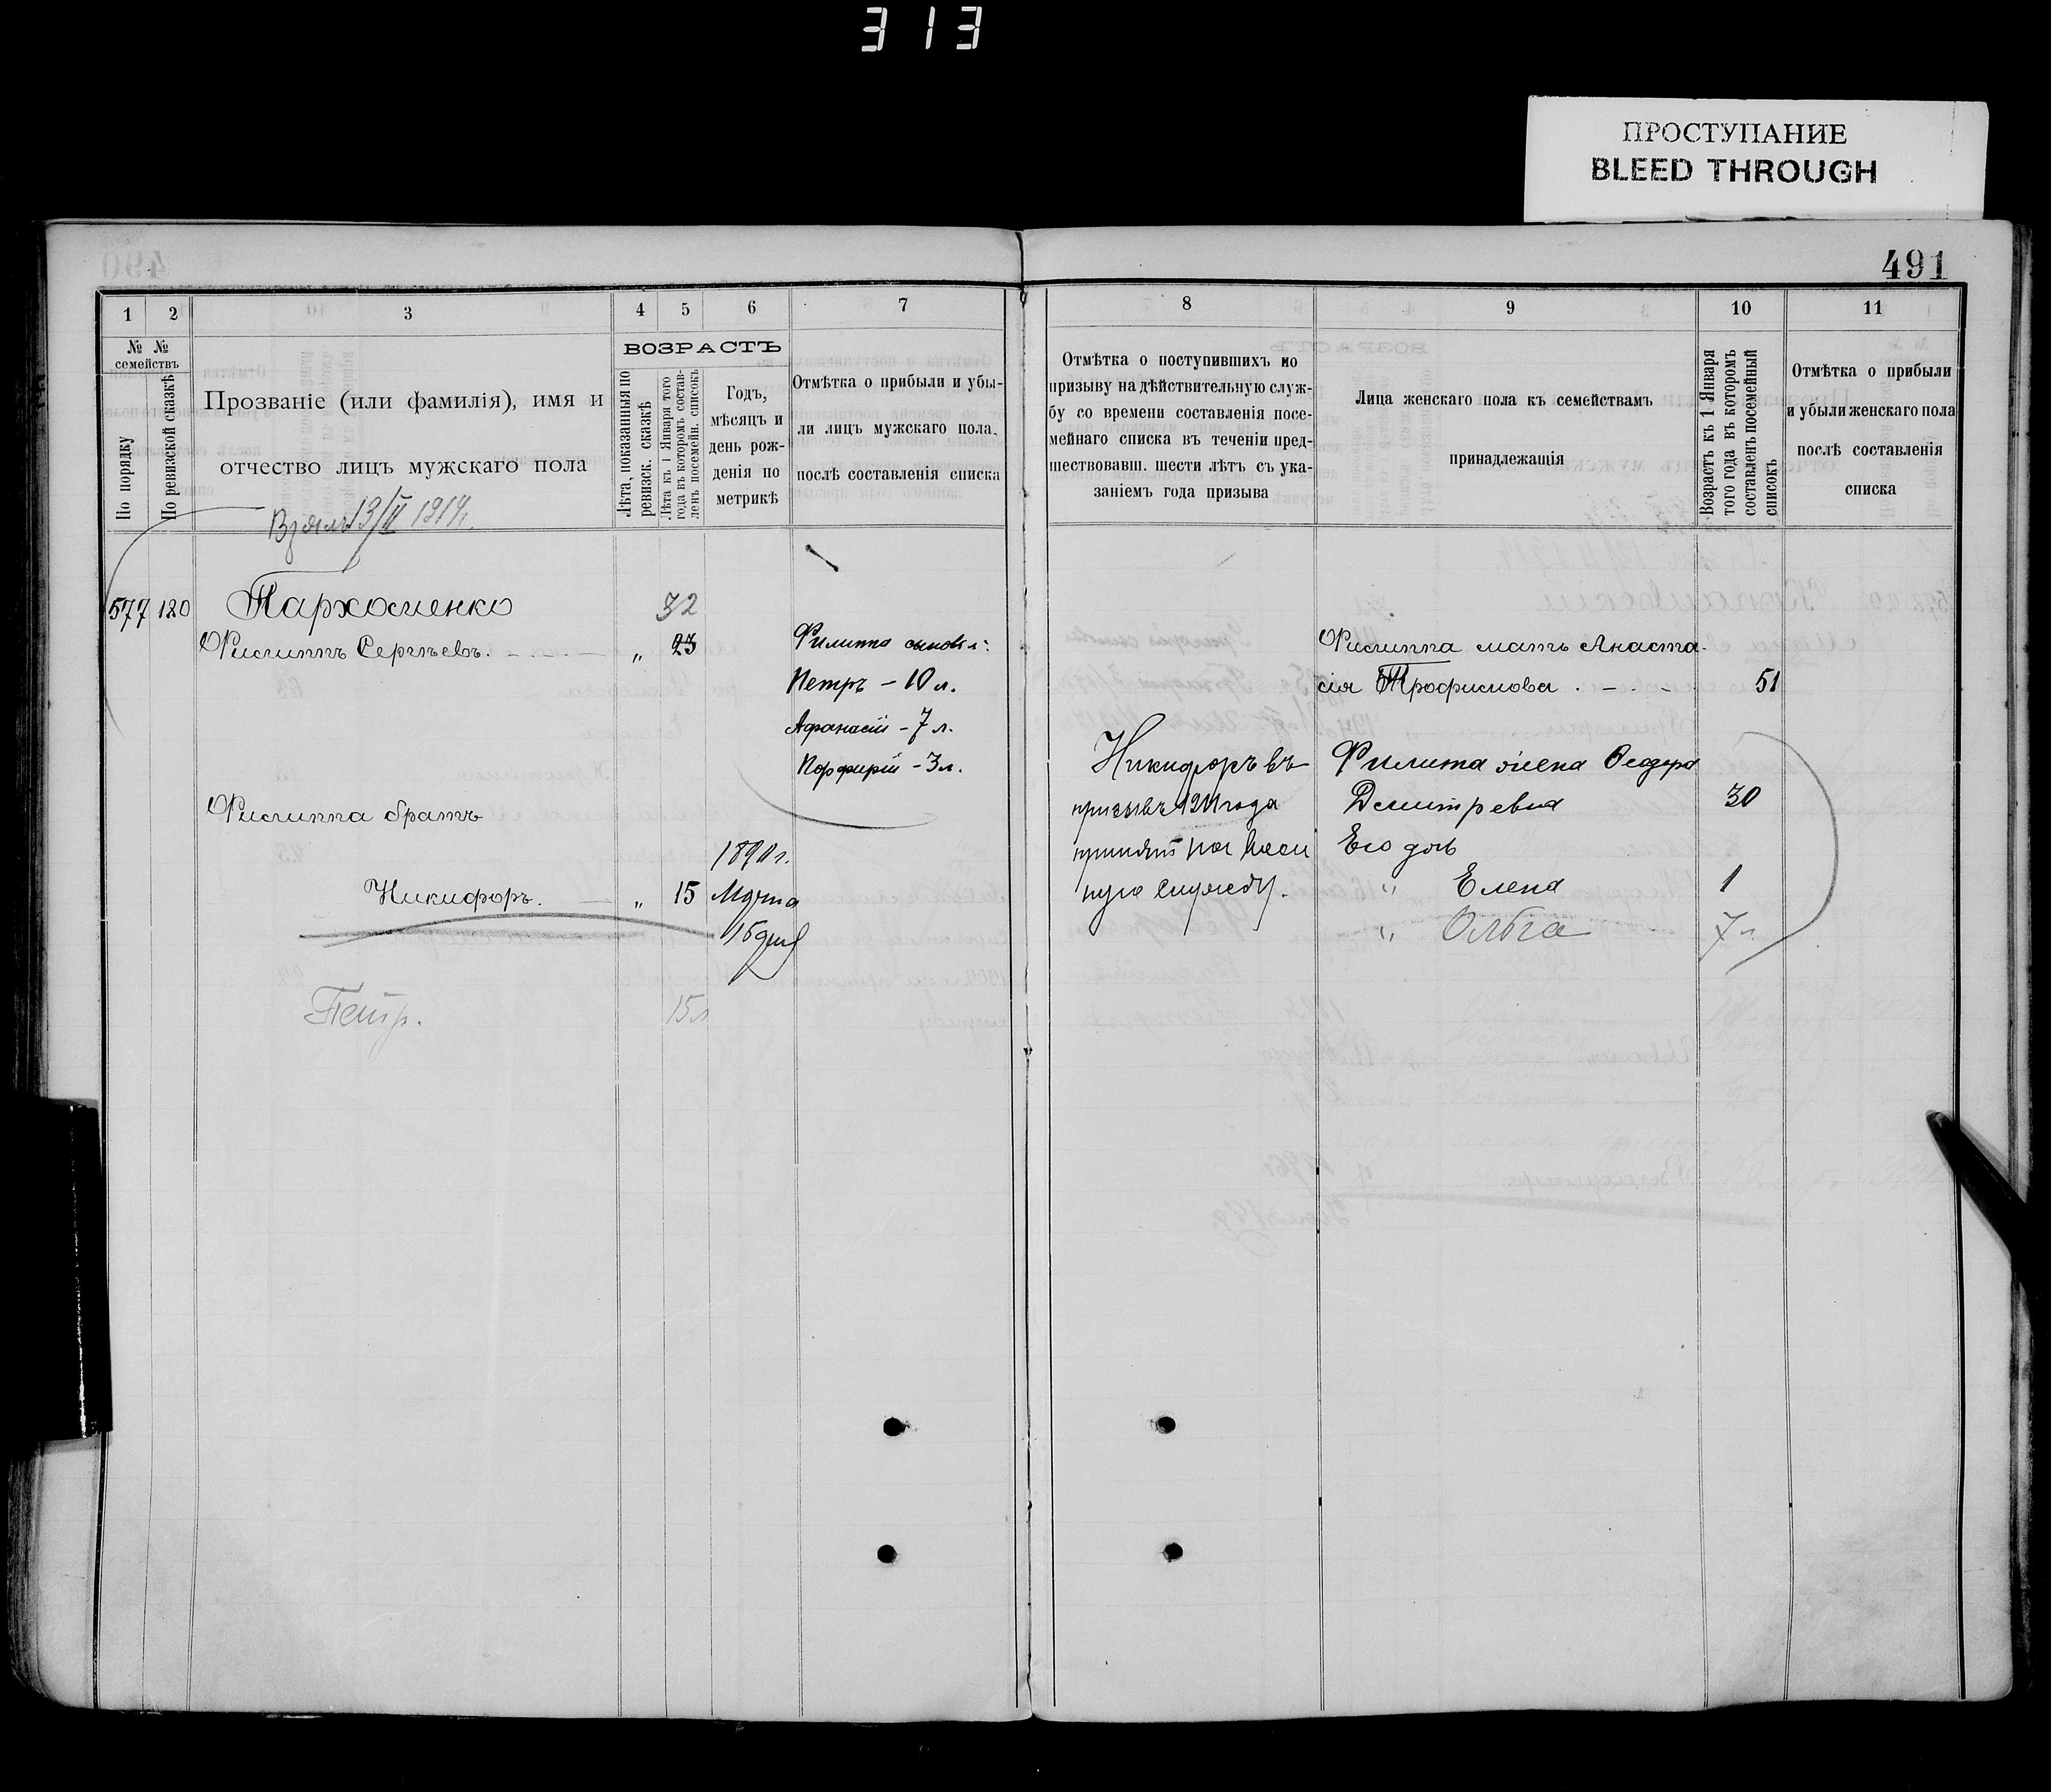 313
ПРОСТУПАНИЕ
BLEED THROUGH
491
1
2
3
4
5
6
7
8
9
10
11
№ №
семействъ
По порядку
По ревизской сказкѣ
Прозваніе (или фамилія), имя и
отчество лицъ мужскаго пола
ВОЗРАСТЪ
Лѣта, показанныя по
ревизск. сказкѣ
Лѣта къ 1 Января того
года въ которомъ состав-
ленъ посемейн. списокъ
Годъ,
мѣсяцъ и
день рож-
денія по
метрикѣ
Отмѣтка о прибыли и убы-
ли лицъ мужскаго пола,
послѣ составленія списка
Отмѣтка о поступившихъ по
призыву на дѣйствительную служ-
бу со времени составленія посе-
мейнаго списка въ теченіи пред-
шествовавш. шести лѣтъ съ ука-
заніемъ года призыва
Лица женскаго пола къ семействамъ
принадлежащія
Возрастъ къ 1 Января
того года въ которомъ
составленъ посемейный
списокъ
Отмѣтка о прибыли
и убыли женскаго пола
послѣ составленія
списка
1914.
577 120 Пархоменко 32
Филиппъ Сергѣевъ. „ 23
Филиппа сыновья:
Петръ - 10 л.
Афанасій - 7 л.
Порфирій - 3 л.
Филиппа братъ
Никифоръ. „ 15
1890 г.
Марта
Петр. 15 л
Никифоръ въ
призывъ 1911 года
принятъ на
службу.
Филиппа мать Анаста-
сія Трофимова 51
Филипа жена Феодора
Демитревна 30
Его доч
" Елена 1
" Ольга 7 л.